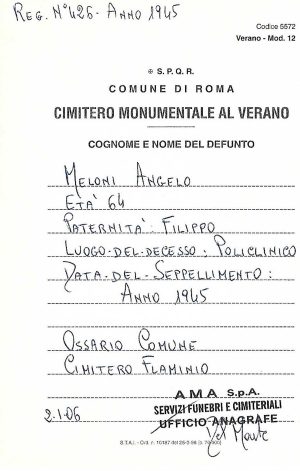 REG. N° 426 - ANNO 1945
Codice 5572
Verano - Mod. 12
S.P.Q.R.
COMUNE DI ROMA
CIMITERO MONUMENTALE AL VERANO
COGNOME E NOME DEL DEFUNTO
MELONI ANGELO
ETÀ 64
PATERNITÀ: FILIPPO
LUOGO-DEL-DECESSO: POLICLINICO
DATA-DEL-SEPPELLIMENTO:
ANNO 1945
OSSARIO COMUNE
CIMITERO FLAMINIO
AMA S.p.A.
SERVIZI FUNEBRI E CIMITERIALI
UFFICIO ANAGRAFE
2.1.06
Del Monte
S.T.A.I. - Ord. n. 10187 del 26-3-96